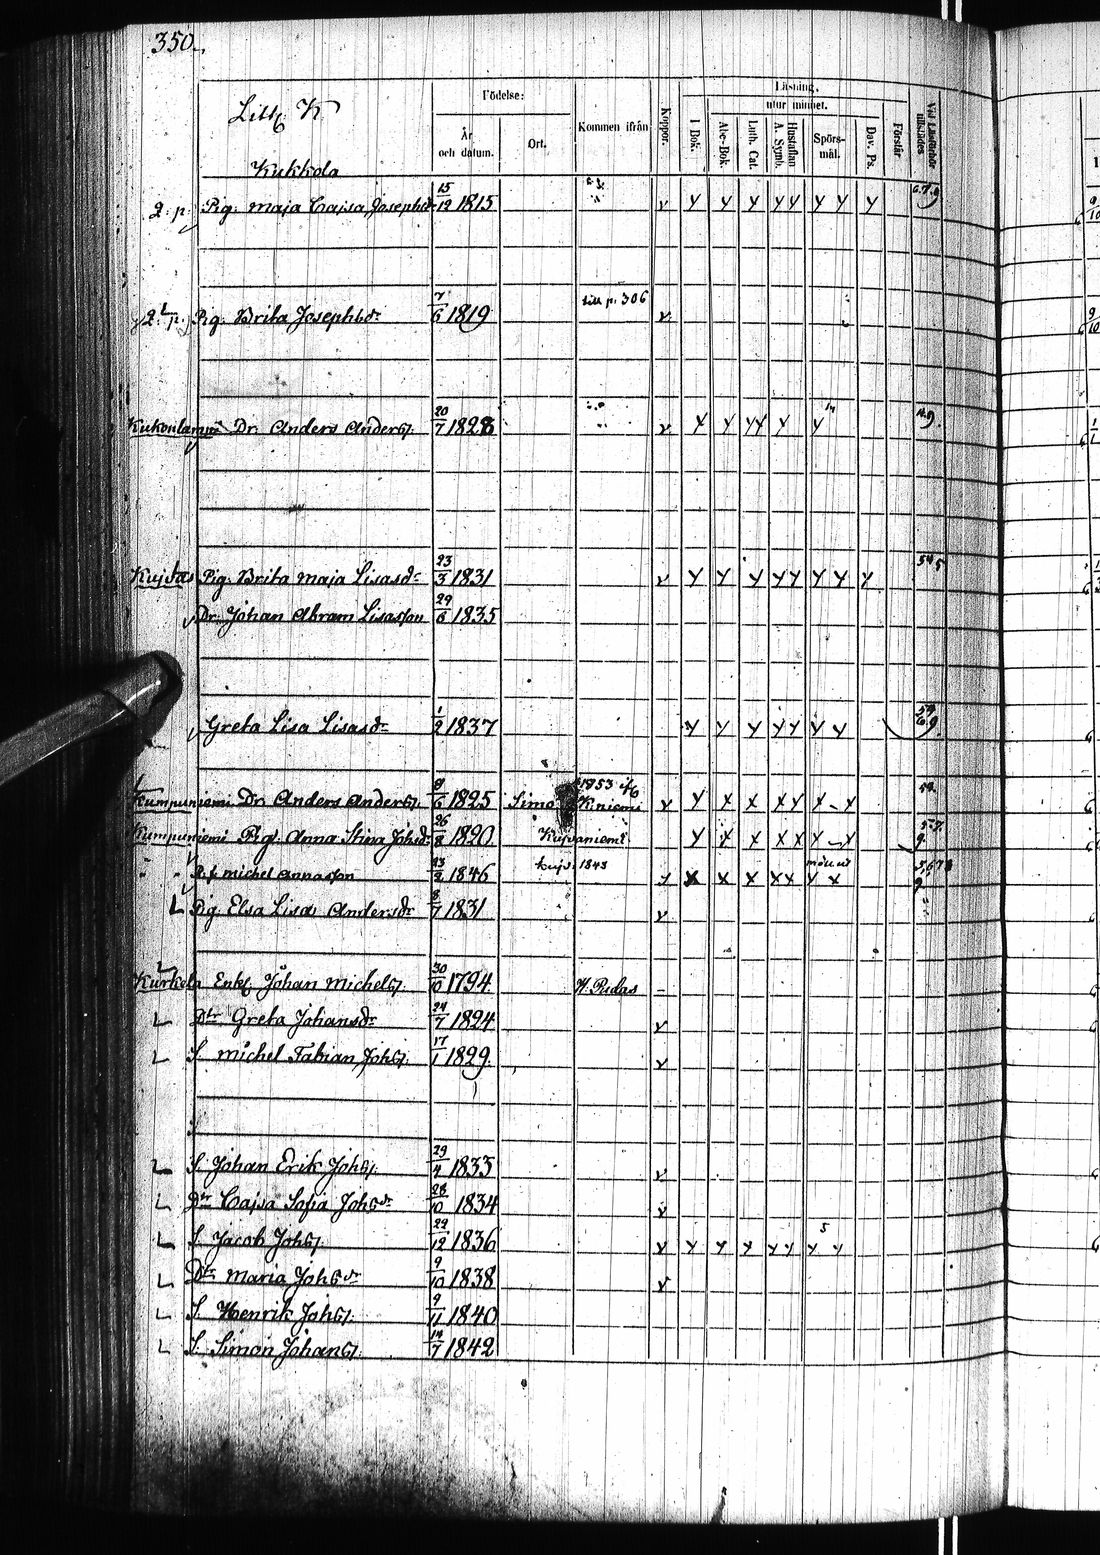 350.
Litt. K
Kukkola
Födelse:
År och datum.
Ort.
Kommen ifrån
Koppor.
Läsning,
utur minnet.
I Bok.
Abc-Bok.
Luth. Cat.
Hustaflan A. Symb.
Spörs-mål.
Dav. Ps.
Förstår
Vid Läsförhör tillstädes
2. p. Pig. Maja Cajsa Josephsdr 15/12 1815 v y y y y y y y y 6.7.9
2. p. Pig. Brita Josephsdr 7/6 1819 Litt p. 306 v
Kukonlammi Dr. Anders Anders. 20/7 1828 v y y y y y y
Kujtas Pig. Brita Maja Lisasdr 23/3 1831 v y y y y y y y y 54,5
Dr. Johan Abram Lisasson 29/6 1835
Greta Lisa Lisasdr 1/2 1837 y y y y y y y
Kumpuniemi Dr. Anders Anders. 8/6 1825 Simo 1853 K.niemi v y x x x y x - x
Kumpuniemi Pig. Anna Stina Johsdr 26/8 1820 Kuivaniemi y x x x x y - x 57.
" " P.s. Michel Annasson 23/2 1846 kujv. 1843 y x x x x x y x 5,678
Pig. Elsa Lisa Andersdr 8/7 1831 v
Kurkela Enkl. Johan Michels. 30/10 1794 H. Pudas -
Dtr Greta Johansdr 24/7 1824 v
S. Michel Fabian Johs. 17/1 1829 v
S. Johan Erik Johs. 29/4 1833 v
Dtr Cajsa Sofia Johsdr 28/10 1834 v
S. Jacob Johs. 29/12 1836 v y y y y y y y 5
Dtr Maria Johsdr 9/10 1838 v
S. Henrik Johs. 9/11 1840
S. Simon Johans. 14/7 1842